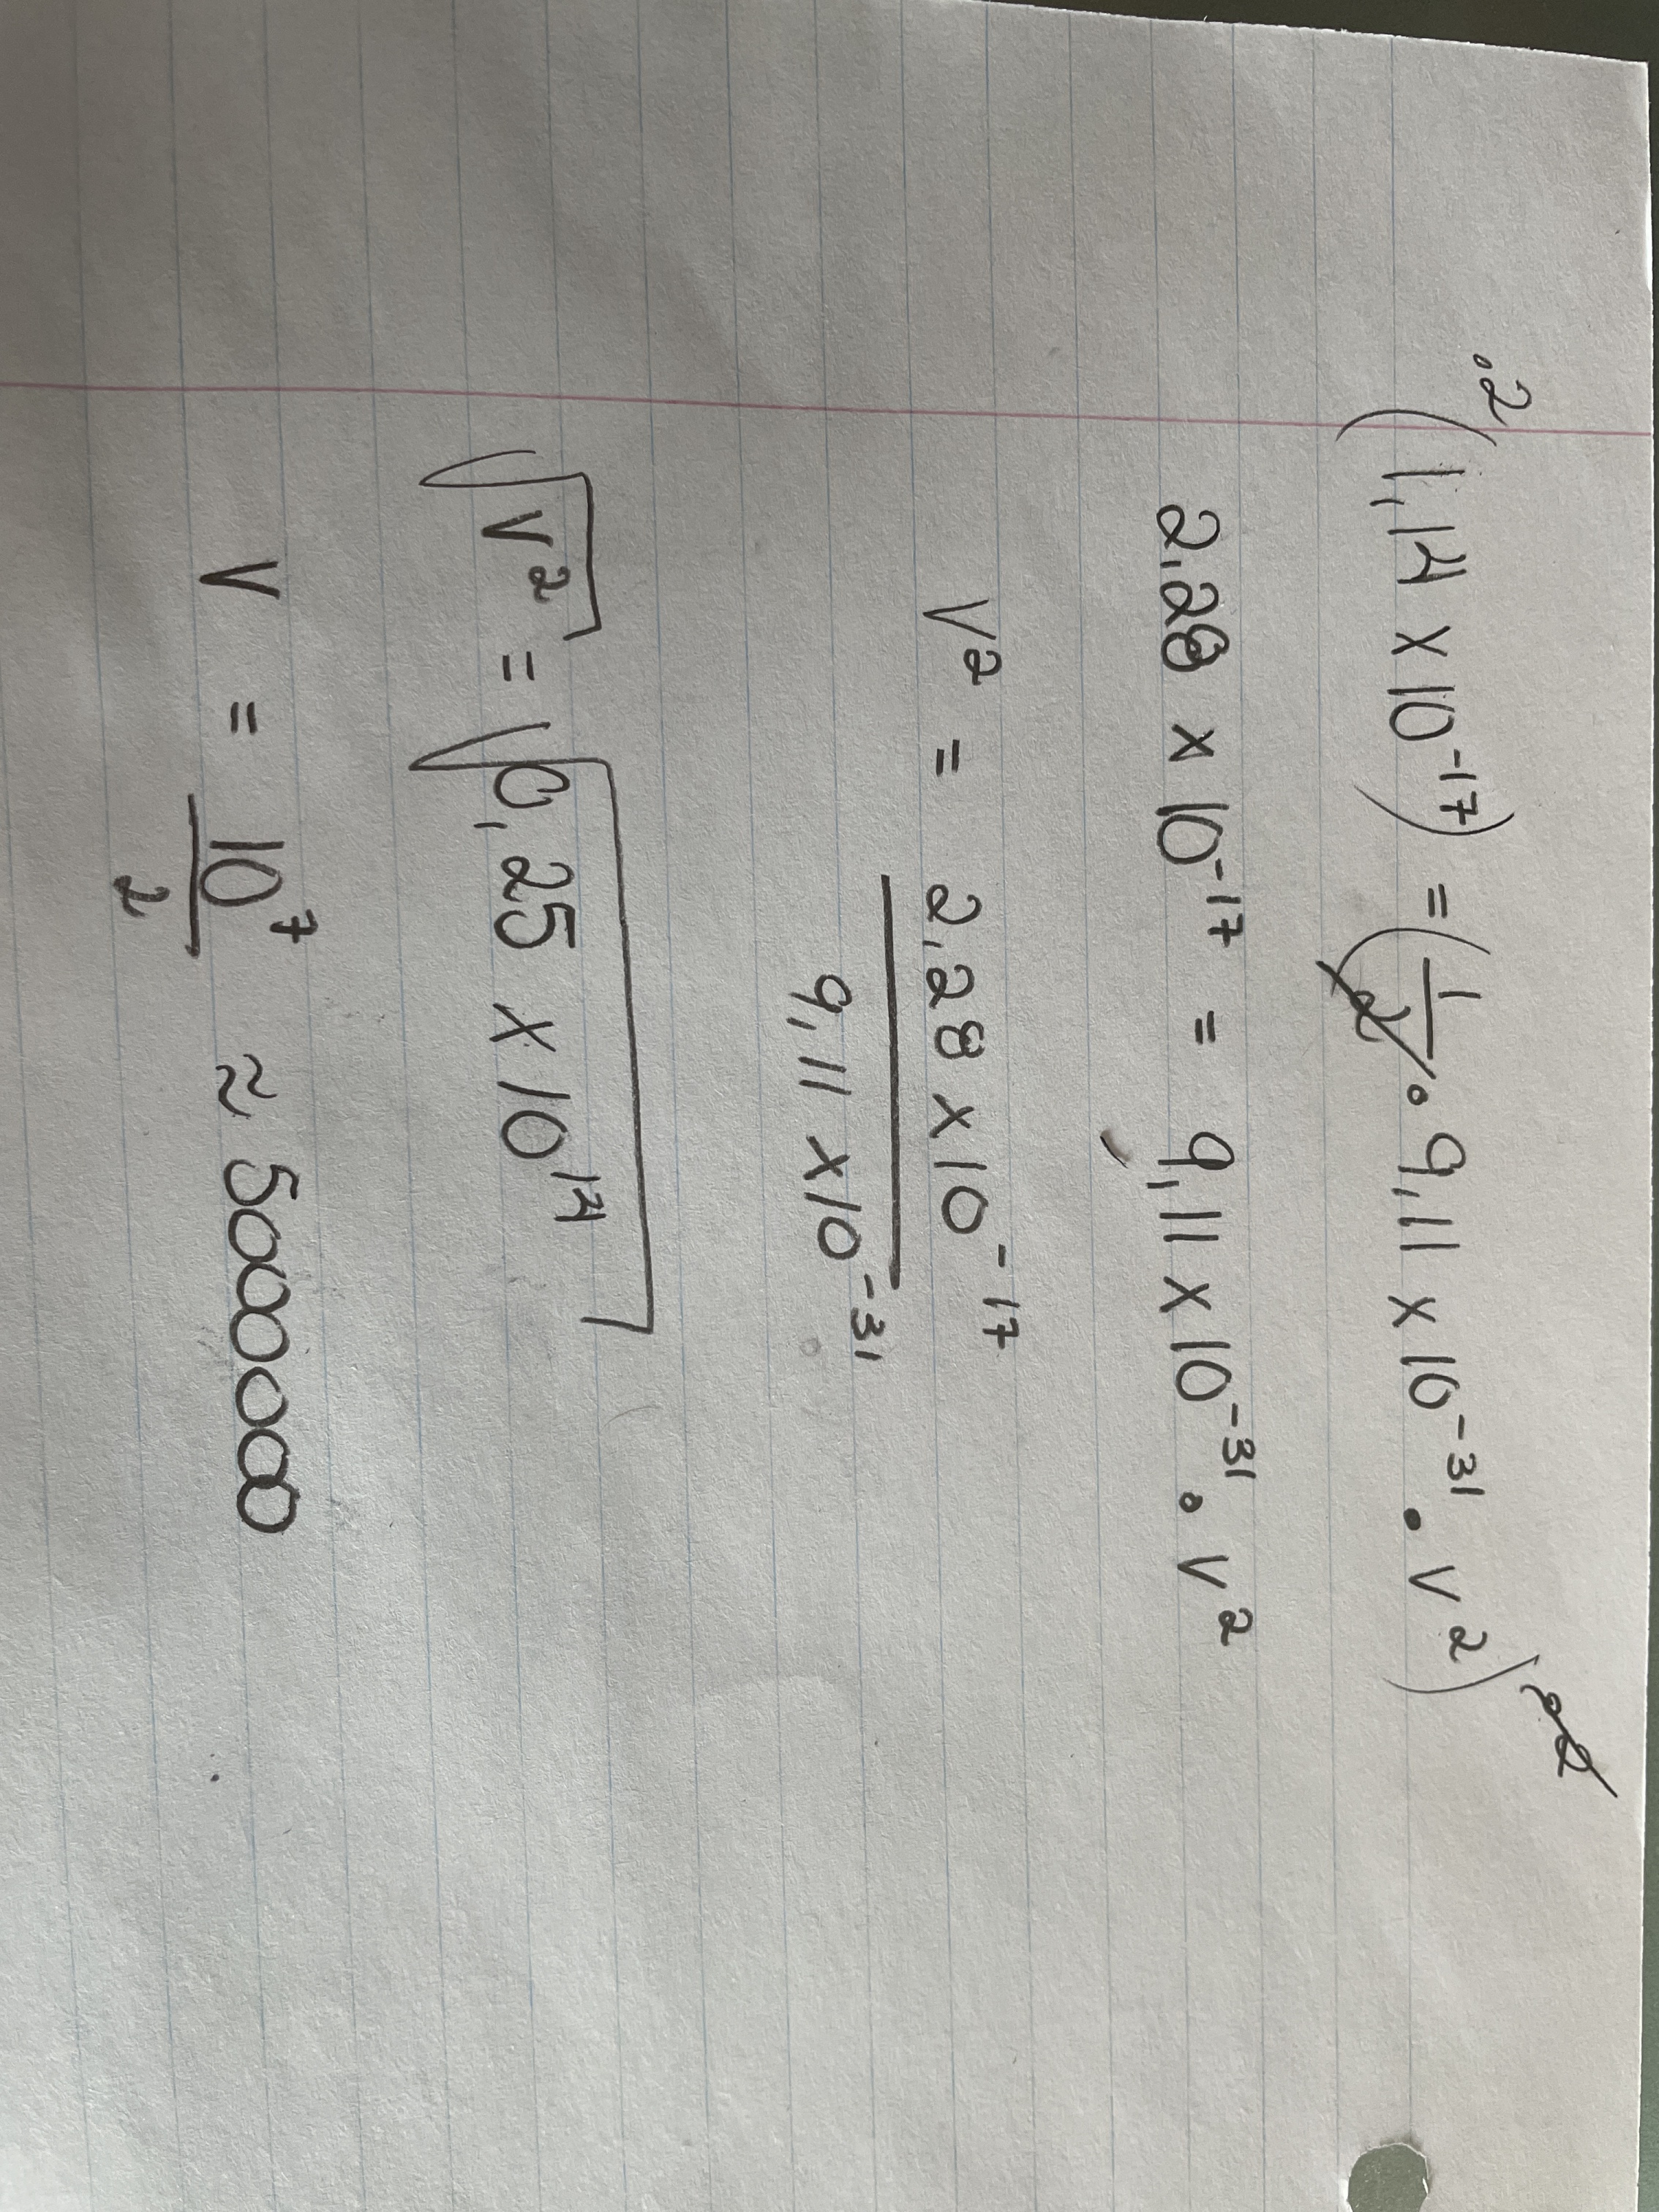 .2 (1,14 x 10⁻¹⁷) = (1/2 · 9,11 x 10⁻³¹ · v²) ·2
2,28 x 10⁻¹⁷ = 9,11 x 10⁻³¹ · v²
v² = 2,28 x 10⁻¹⁷
9,11 x 10⁻³¹
√v² = √0,25 x 10¹⁴
v = 10⁷/2 ≈ 5000000